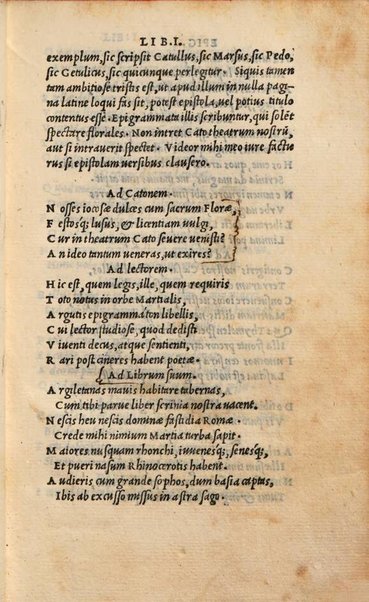 LIB. I.
exemplum, sic scripsit Catullus, sic Marsus, sic Pedo,
sic Getulicus, sic quicunque perlegitur. Siquis tamen
tam ambitiose tristis est, ut apud illum in nulla pagi
na latine loqui fas sit, potest epistola, uel potius titulo
contentus esse. Epigrammata illis scribuntur, qui solẽt
spectare florales. Non intret Cato theatrum nostrũ,
aut si intrauerit spectet. Videor mihi meo iure factu
rus si epistolam uersibus clausero.
Ad Catonem.
Nosses iocosæ dulces cum sacrum Floræ,
Festosq; lusus, & licentiam uulgi,
Cur in theatrum Cato seuere uenisti?
An ideo tantum ueneras, ut exires?
Ad lectorem.
Hic est, quem legis, ille, quem requiris
Toto notus in orbe Martialis,
Argutis epigrammáton libellis,
Cui lector studiose, quod dedisti
Viuenti decus, atque sentienti,
Rari post cineres habent poetæ.
Ad Librum suum.
Argiletanas mauis habitare tabernas,
Cum tibi parue liber scrinia nostra uacent.
Nescis heu nescis dominæ fastidia Romæ
Crede mihi nimium Martia turba sapit.
Maiores nusquam rhonchi, iuuenesq́;, senesq́;,
Et pueri nasum Rhinocerotis habent.
Audieris cum grande sophos, dum basia captas,
Ibis ab excusso missus in astra sago.